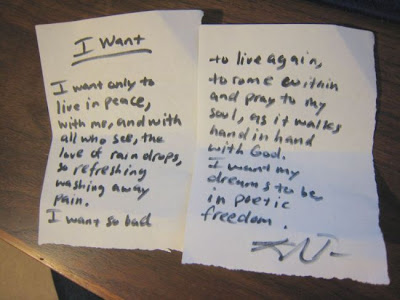 I Want
I want only to
live in peace,
with me, and with
all who see, the
love of rain drops,
so refreshing
washing away
pain.
I want so bad
to live again,
to come within
and pray to my
soul, as it walks
hand in hand
with God.
I want my
dreams to be
in poetic
freedom.